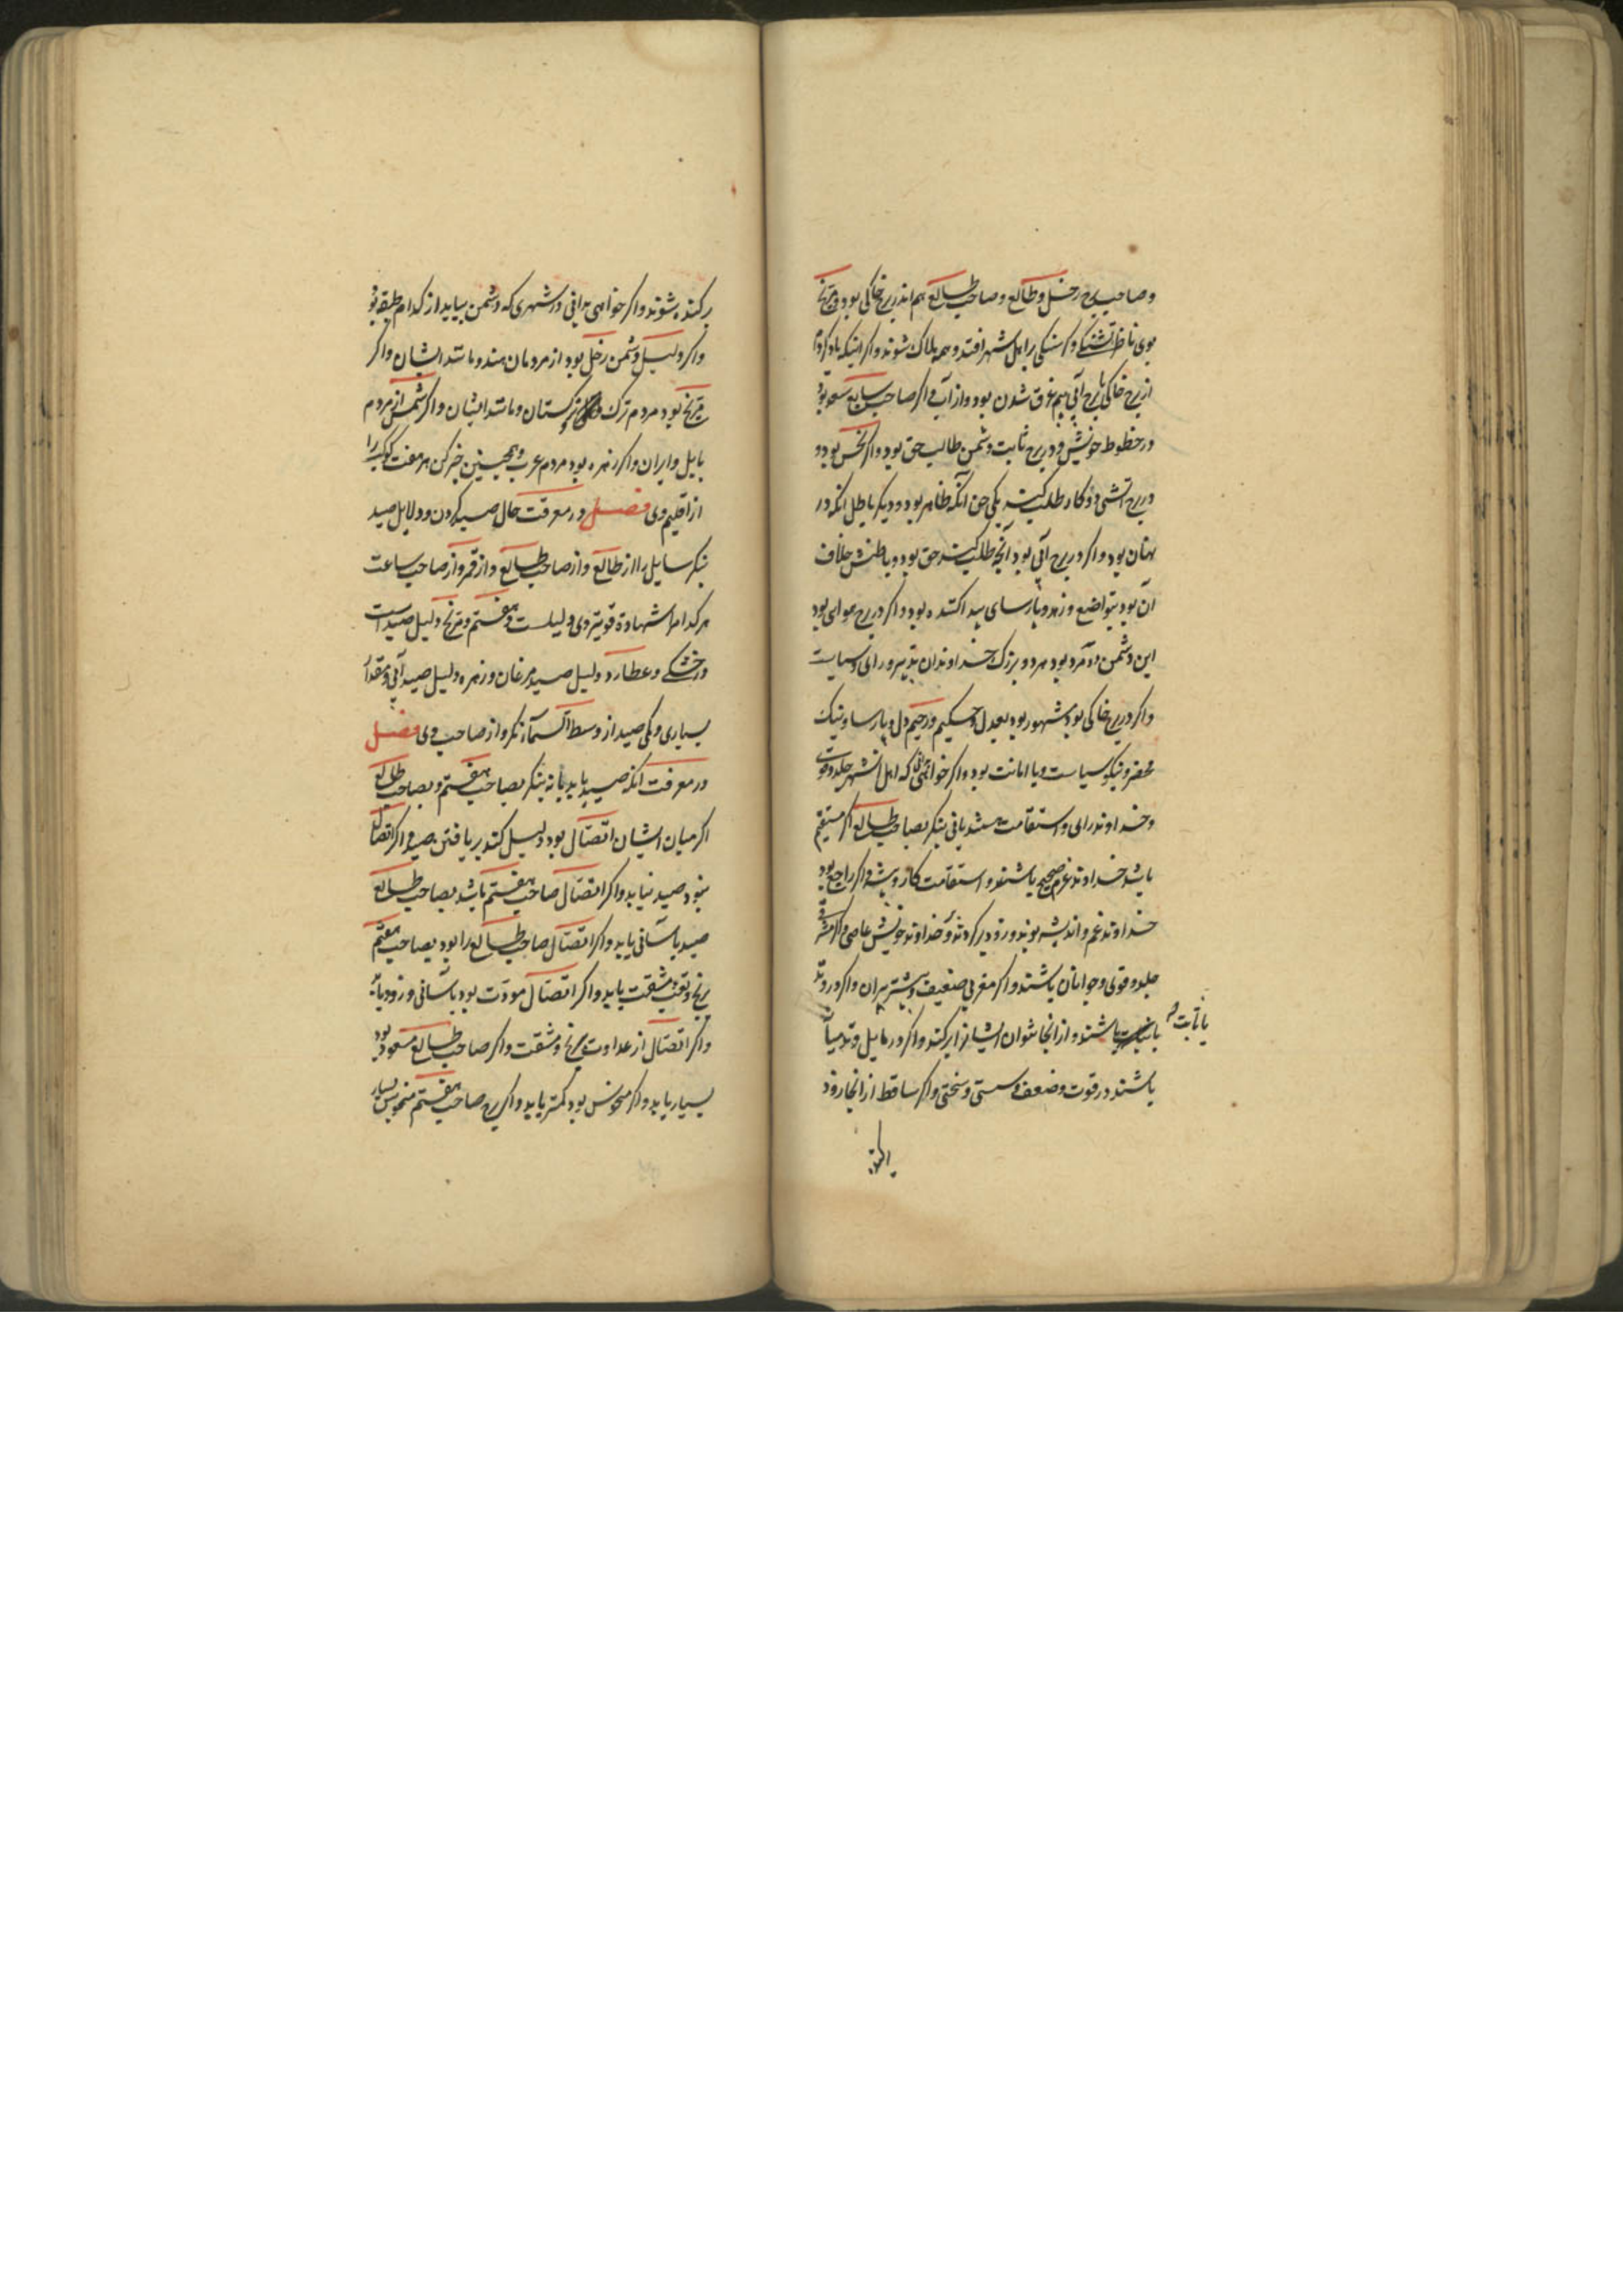 وصاحب برج زحل وطالع وصاحب طالع هم اندر برج خاکی بود و مریخ
بوی ناظر تشنگی و کرسنکی را اهل شهر افتد وهمه هلاک شوند واکر
از برج خاکی با برج آبی بیم غرق شدن بود و از آب واکر صاحب سابع سعد بود
در حظوظ خویش ودر برج ثابت دشمن طالب حق بود واکر نحس بود و
در برج آتشی دو کار طلب کند یکی حق آنکه ظاهر بود و دیکر باطل آنکه در
نهان بود واکر در برج آبی بود آنچه طلب کند حق بود وباطنش خلاف
آن بود بتواضع وزهد وپارسای پیدا کننده بود واکر در برج هوایی بود
این دشمن دو مرد بود هر دو بزرک خداوندان تدبیر ورای وسیاست
واکر در برج خاکی بود مشهور بود بعدل وحکیم ورحیم دل وپارسا ونیک
محضر ونیکو سیاست وبا امانت بود واکر خواهی که اهل شهر جلد
وخداوند رای واستقامت هستند یا نی بنکر بصاحب طالع اکر مستقیم
باشد خداوند عزم صحیح باشند واستقامت کار واکر راجع بود
خداوند غم واندیشه بوند وزود برکردند و خداوند خویش عاصی واکر مشرقی
جلد وقوی وجوانان باشند واکر مغربی ضعیف وبیشتر پیران واکر در وتد
یا ثابت
باشند واز آنجا نتوان ایشانرا برکند واکر در مایل وتد میانه
باشند در قوت وضعف وسستی وسختی واکر ساقط از آنجا زود
برکنده شوند واکر خواهی که بدانی در شهری که دشمن بیاید از کدام طبقه بود
واکر دلیل دشمن زحل بود از مردمان هند ومانند ایشان واکر
مریخ بود مردم ترک وترکستان ومانند ایشان واکر شمس از مردم
بابل وایران واکر زهره بود مردم عرب وهمچنین خبر کن هر هفت کوکب را
از اقلیم وی فصل در معرفت حال صید کردن ودلایل صید
بنکر سایل را از طالع واز صاحب طالع واز قمر واز صاحب ساعت
هر کدام را شهادة قویتر وی دلیلست وهفتم ومریخ دلیل صید است
در خشکی وعطارد دلیل صید مرغان وزهره دلیل صید آبی ومقدار
بسیاری وکمی صید از وسط السما نکر واز صاحب وی فصل
در معرفت آنکه صید یابد یا نه بنکر بصاحب هفتم وبصاحب طالع
اکر میان ایشان اتصال بود دلیل کند بر یافتن صید واکر اتصال
نبود صید نیابد واکر اتصال صاحب هفتم باشد بصاحب طالع
صید بآسانی یابد واکر اتصال صاحب طالع را بود بصاحب هفتم
برنج وتعب ومشقت یابد واکر اتصال مودت بود بآسانی وزود یابد
واکر اتصال از عداوت برنج ومشقت واکر صاحب طالع مسعود بود
بسیار یابد واکر منحوس بود کمتر یابد واکر برج صاحب هفتم منحوس بسیار